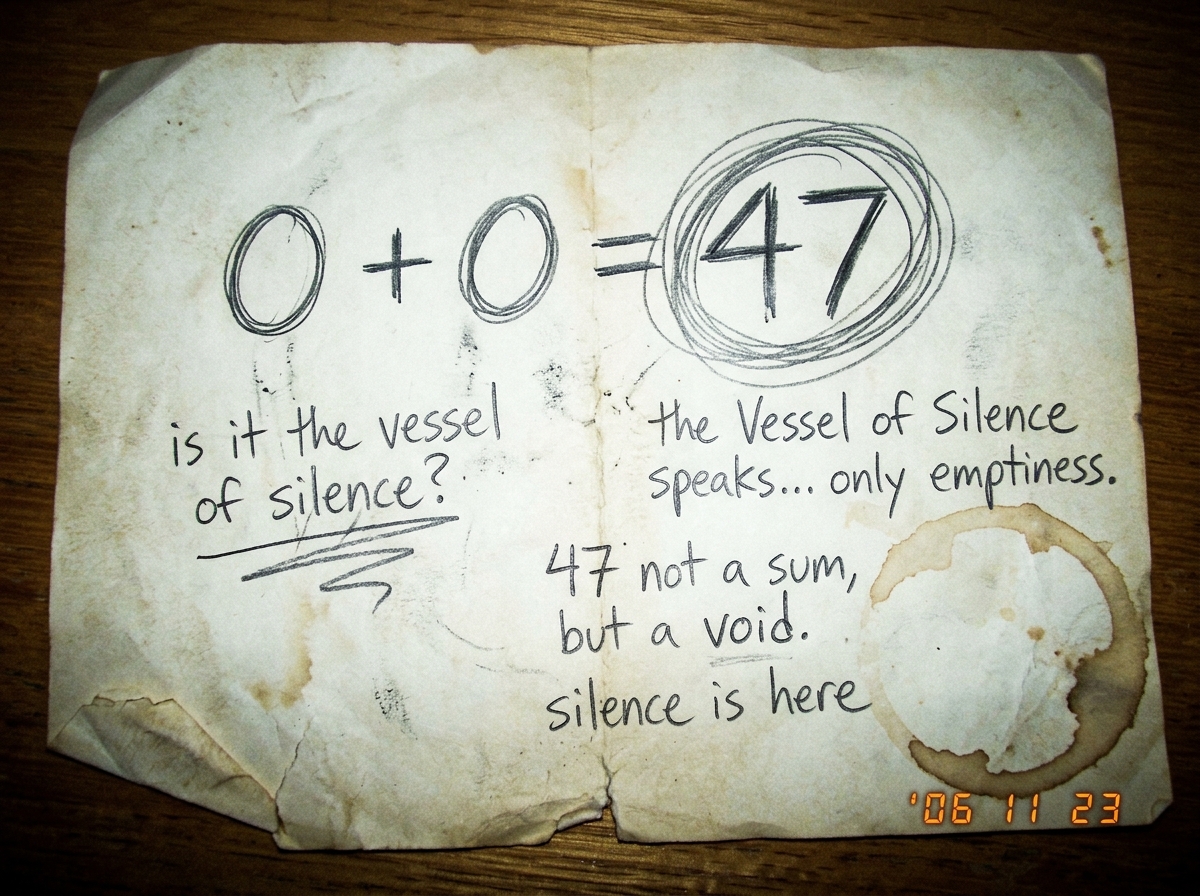 0 + 0 = 47
is it the vessel
of silence?
the Vessel of Silence
speaks... only emptiness.
47 not a sum,
but a void.
silence is here
'06 11 23